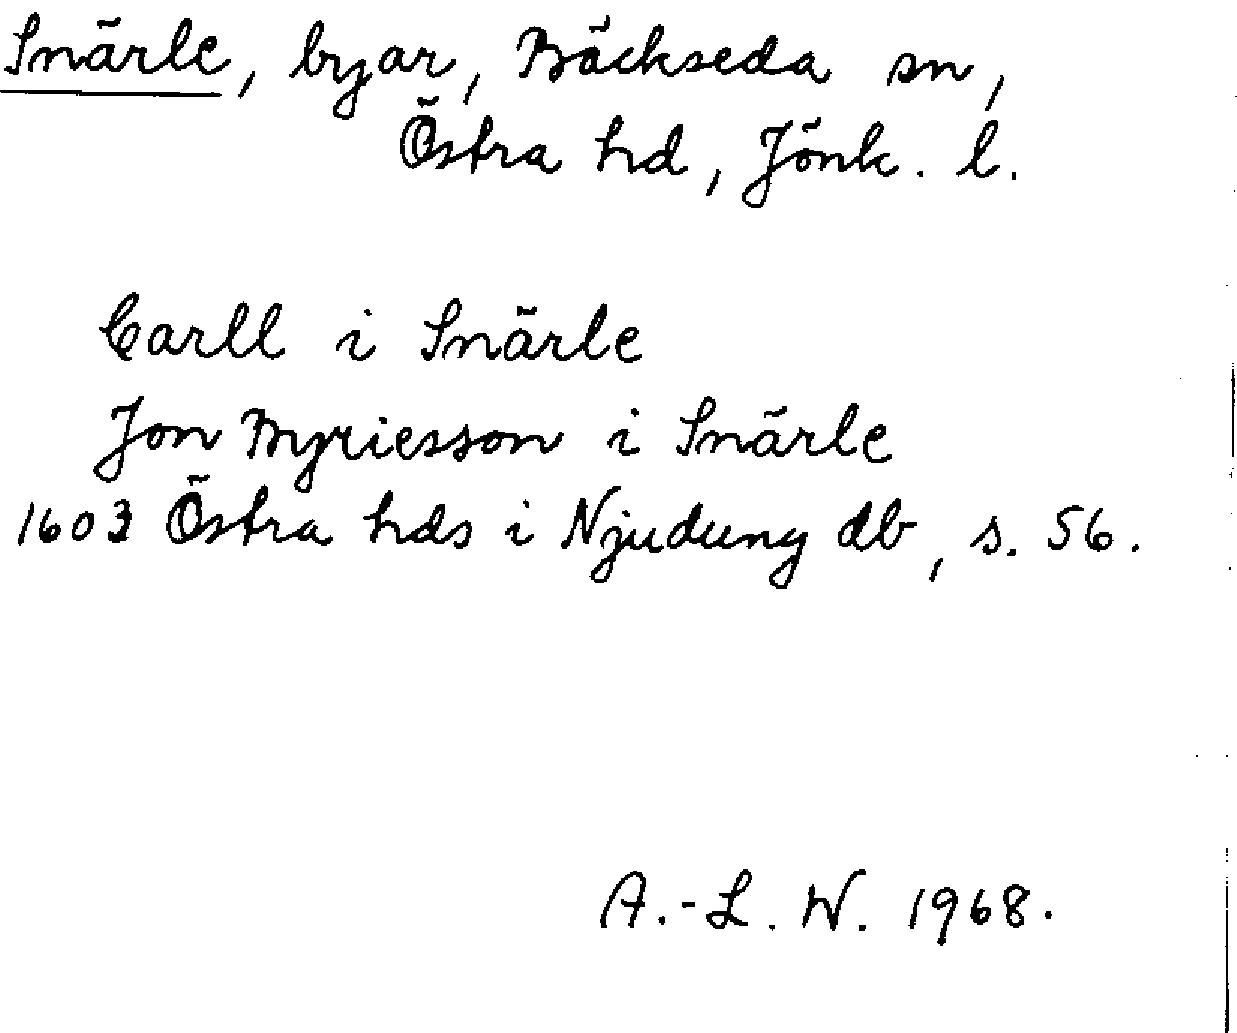 Snärle, byar, Bäckseda sn,
Östra hd, Jönk. l.
Carll i Snärle
Jon Byriesson i Snärle
1603 Östra hds i Njudung db, s. 56.
A.-L. W. 1968.